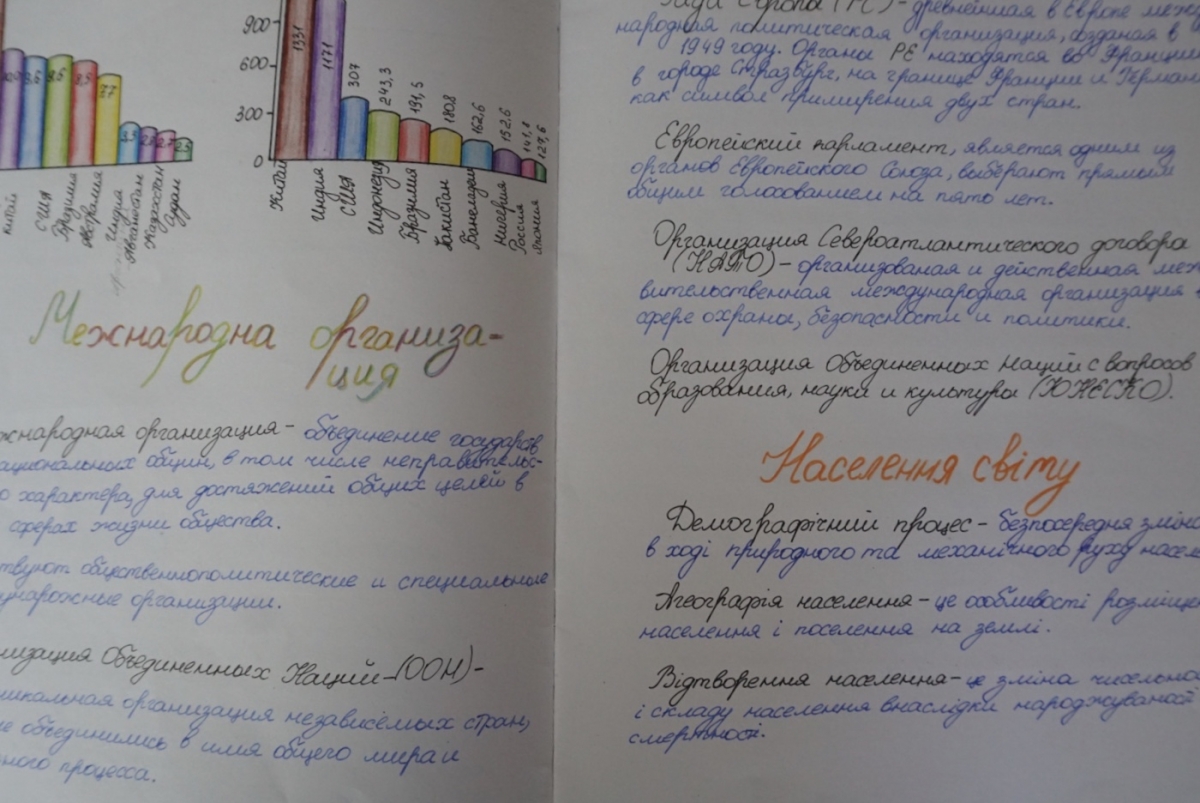 900
600
300
0
1331
1171
307
243,3
191,5
180,8
162,6
152,6
141,8
127,6
9,6
9,5
7,7
3,3
2,8
2,7
2,5
Китай
США
Бразилия
Австралия
Индия
Казахстан
Судан
Китай
Индия
США
Индонезия
Бразилия
Пакистан
Бангладеш
Нигерия
Россия
Япония
Межнародна организа-
ция
жнародная организация - объединение государств
ациональных общин, в том числе неправительс-
о характера, для достяжений общих целей в
сферах жизни общества.
твуют общественнополитические и специальные
ународные организации.
низация Объединенных Наций - (ООН) -
икальная организация независемых стран,
е объединились в имя общего мира и
ного процесса.
Рада Європа (РЄ) - древнейшая в Европе меж
народная политическая организация, созданая в
1949 году. Органы РЕ находятся во Франции
в городе Стразбург, на границе Франции и Герман
как символ примирения двух стран.
Европейский парламент, является одним из
органов Европейского Союза, выберают прямым
общим голосованием на пять лет.
Организация Североатлантического договора
(НАТО) - организованая и действенная меж
вительственная международная организация
сфере охраны, безопасности и политики.
Организация Объединенных Наций с вопросов
образования, науки и культуры (ЮНЕСКО).
Населення світу
Демографічний процес - безпосередня зміна
в ході природного та механічного руху насел
географія населення - це особливості розміще
населення і поселення на землі.
Відтворення населення - це зміна чисельно
і складу населення внаслідки народжуваності
смертності.